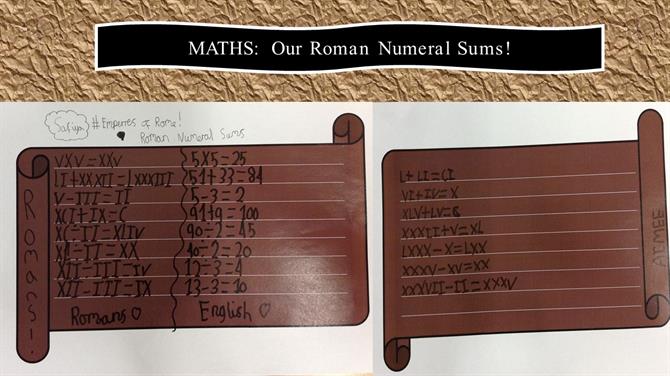 MATHS: Our Roman Numeral Sums!
Safiya #Emperres of Rome!
Roman Numeral Sums
Romans!
VXV=XXV 5x5=25
LI+XXXII=LXXXIII 51+33=84
V-III=II 5-3=2
XCI+IX=C 91+9=100
XC÷II=XLIV 90÷2=45
XL÷II=XX 40÷2=20
XII÷III=IV 12÷3=4
XII-III=IX 13-3=10
Romans English
L+LI=CI
VI+IV=X
XLV+LV=C
XXXIII+V=XL
LXXX-X=LXX
XXXV-XV=XX
XXXVII-II=XXXV
AIMEE